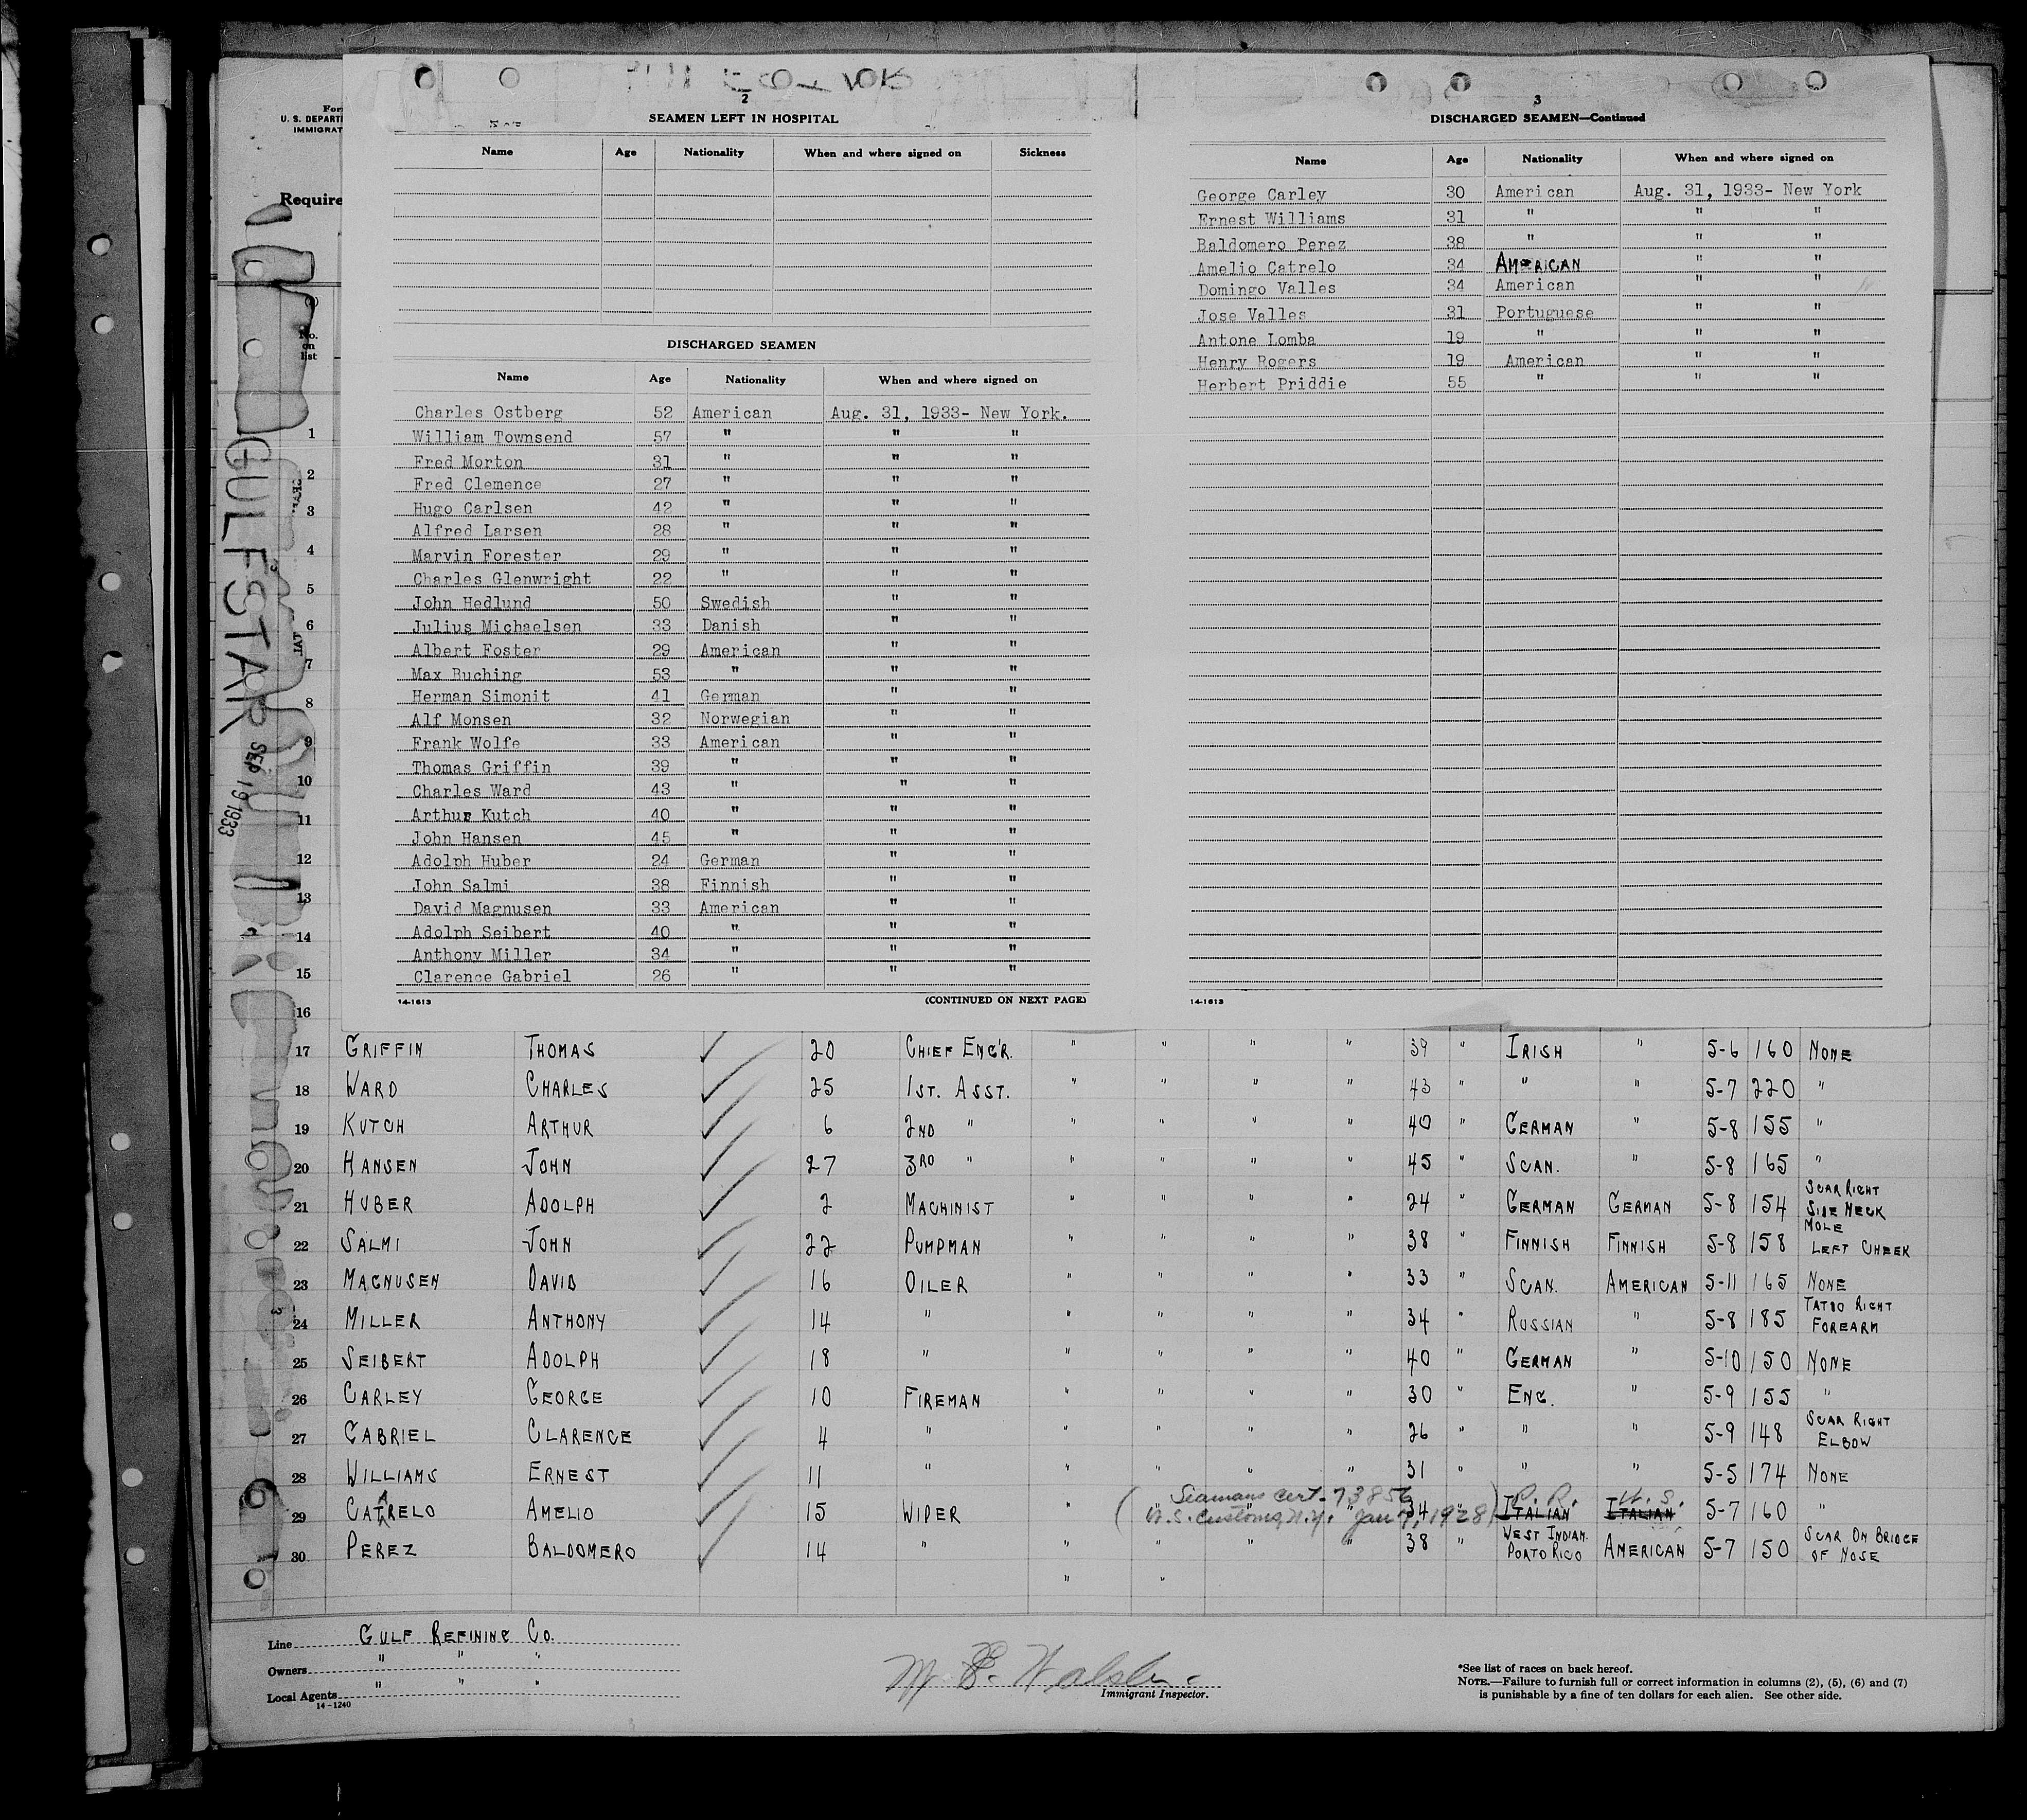 For
U. S. DEPARTM
IMMIGRAT
Require
No.
on
list
GULFSTAR
SEP 19 1933
2
SEAMEN LEFT IN HOSPITAL
Name Age Nationality When and where signed on Sickness
DISCHARGED SEAMEN
Name Age Nationality When and where signed on
Charles Ostberg 52 American Aug. 31, 1933- New York.
William Townsend 57 " " "
Fred Morton 31 " " "
Fred Clemence 27 " " "
Hugo Carlsen 42 " " "
Alfred Larsen 28 " " "
Marvin Forester 29 " " "
Charles Glenwright 22 " " "
John Hedlund 50 Swedish " "
Julius Michaelsen 33 Danish " "
Albert Foster 29 American " "
Max Buching 53 " " "
Herman Simonit 41 German " "
Alf Monsen 32 Norwegian " "
Frank Wolfe 33 American " "
Thomas Griffin 39 " " "
Charles Ward 43 " " "
Arthur Kutch 40 " " "
John Hansen 45 " " "
Adolph Huber 24 German " "
John Salmi 38 Finnish " "
David Magnusen 33 American " "
Adolph Seibert 40 " " "
Anthony Miller 34 " " "
Clarence Gabriel 26 " " "
14-1613 (CONTINUED ON NEXT PAGE)
3
DISCHARGED SEAMEN—Continued
Name Age Nationality When and where signed on
George Carley 30 American Aug. 31, 1933- New York
Ernest Williams 31 " " "
Baldomero Perez 38 " " "
Amelio Catrelo 34 AMERICAN " "
Domingo Valles 34 American " "
Jose Valles 31 Portuguese " "
Antone Lomba 19 " " "
Henry Rogers 19 American " "
Herbert Priddie 55 " " "
14-1613
1
2
3
4
5
6
7
8
9
10
11
12
13
14
15
16
17 GRIFFIN THOMAS 20 CHIEF ENG'R. " " " " 39 " IRISH " 5-6 160 NONE
18 WARD CHARLES 25 1ST. ASST. " " " " 43 " " " 5-7 220 "
19 KUTCH ARTHUR 6 2ND " " " " " 40 " GERMAN " 5-8 155 "
20 HANSEN JOHN 27 3RD " " " " " 45 " SCAN. " 5-8 165 "
21 HUBER ADOLPH 2 MACHINIST " " " " 24 " GERMAN GERMAN 5-8 154 SCAR RIGHT SIDE NECK
22 SALMI JOHN 22 PUMPMAN " " " " 38 " FINNISH FINNISH 5-8 158 MOLE LEFT CHEEK
23 MAGNUSEN DAVID 16 OILER " " " " 33 " SCAN. AMERICAN 5-11 165 NONE
24 MILLER ANTHONY 14 " " " " " 34 " RUSSIAN " 5-8 185 TATOO RIGHT FOREARM
25 SEIBERT ADOLPH 18 " " " " " 40 " GERMAN " 5-10 150 NONE
26 CARLEY GEORGE 10 FIREMAN " " " " 30 " ENG. " 5-9 155 "
27 GABRIEL CLARENCE 4 " " " " " 26 " " " 5-9 148 SCAR RIGHT ELBOW
28 WILLIAMS ERNEST 11 " " " " " 31 " " " 5-5 174 NONE
(Seamans Cert-73856 P. R. U. S.
29 CATRELO AMELIO 15 WIPER " " " " 34 " ITALIAN ITALIAN 5-7 160 "
U.S. Customs N.Y. Jan 9, 1928)
30 PEREZ BALDOMERO 14 " " " " " 38 " WEST INDIAN. PORTO RICO AMERICAN 5-7 150 SCAR ON BRIDGE OF NOSE
" "
Line GULF REFINING CO.
Owners " " "
Local Agents " " "
14-1240
Immigrant Inspector.
*See list of races on back hereof.
NOTE.—Failure to furnish full or correct information in columns (2), (5), (6) and (7)
is punishable by a fine of ten dollars for each alien. See other side.